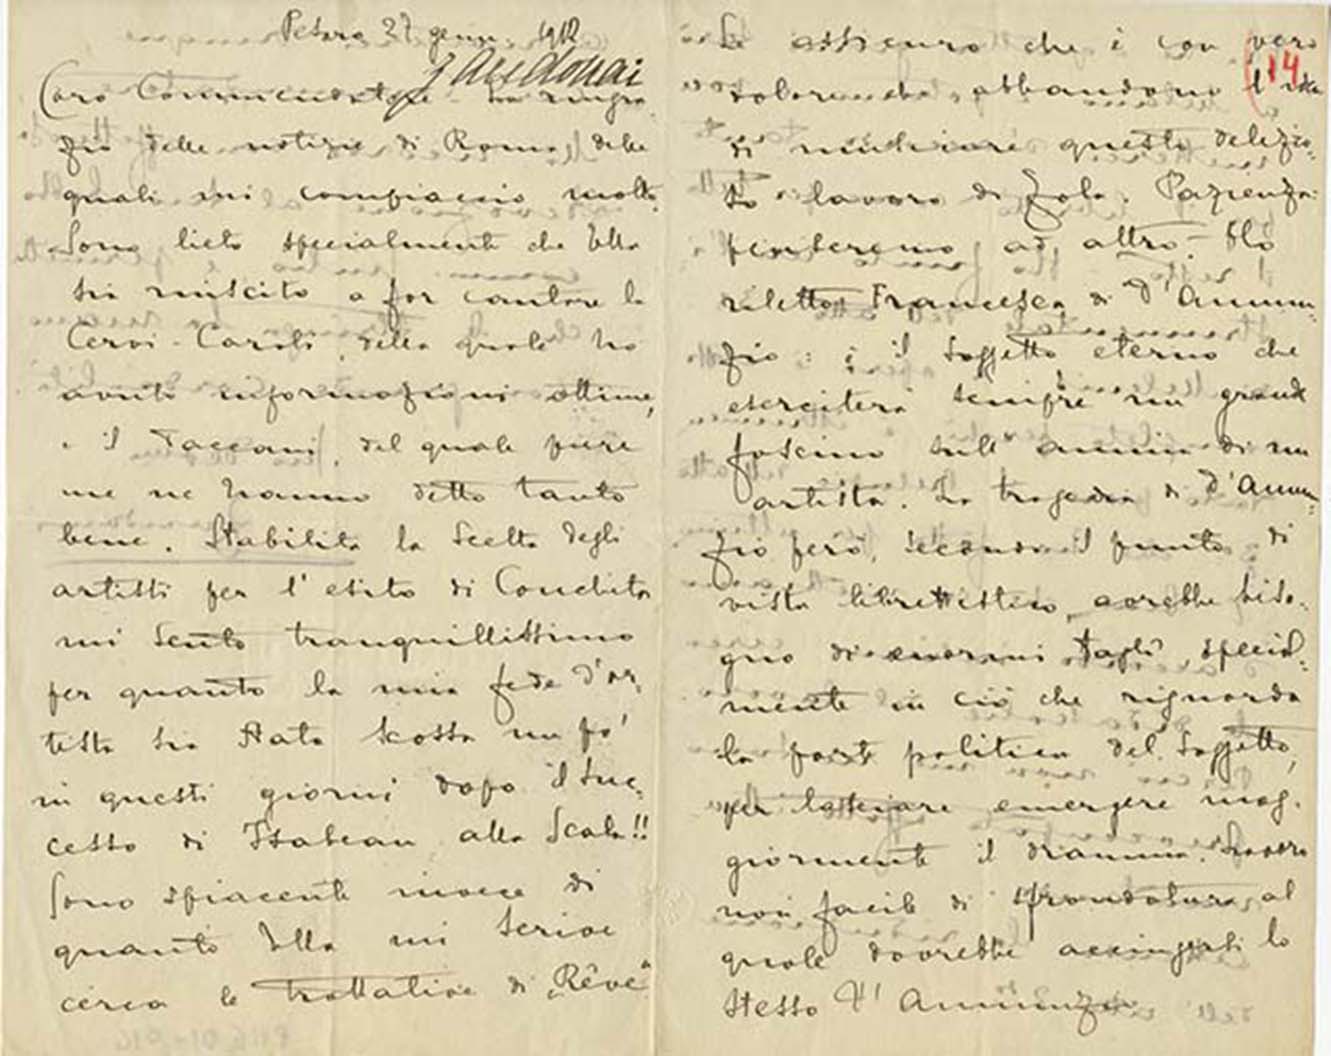 Pesaro 27 genn. 1912
Zandonai
Caro Commendatore - La ringra-
zio delle notizie di Roma delle
quali mi compiaccio molto.
Sono lieto specialmente che Ella
sia riuscito a far cantare la
Cervi-Caroli, della quale ho
avuto informazioni ottime,
e il Taccani, del quale pure
me ne hanno detto tanto
bene. Stabilita la scelta degli
artisti per l'esito di Conchita
mi sento tranquillissimo
per quanto la mia fede d'ar-
tista sia stata scossa un po'
in questi giorni dopo il suc-
cesso di Isabeau alla Scala!!
Sono spiacente invece di
quanto Ella mi scrive
circa le trattative di „Rêve"
14
Le assicuro che è con vero
dolore che abbandono l'idea
di musicare questo delizio-
so lavoro di Zola. Pazienza:
penseremo ad altro - Ho
riletto Francesca di d'Annun-
zio: è il soggetto eterno che
eserciterà sempre un grande
fascino sull'animo di un
artista. La tragedia di d'Annun-
zio però, secondo il punto di
vista librettistico, avrebbe biso-
gno di enormi tagli special-
mente in ciò che riguarda
la parte politica del soggetto,
per lasciare emergere mag-
giormente il dramma. Lavoro
non facile di sfrondatura, al
quale dovrebbe accingersi lo
stesso D'Annunzio